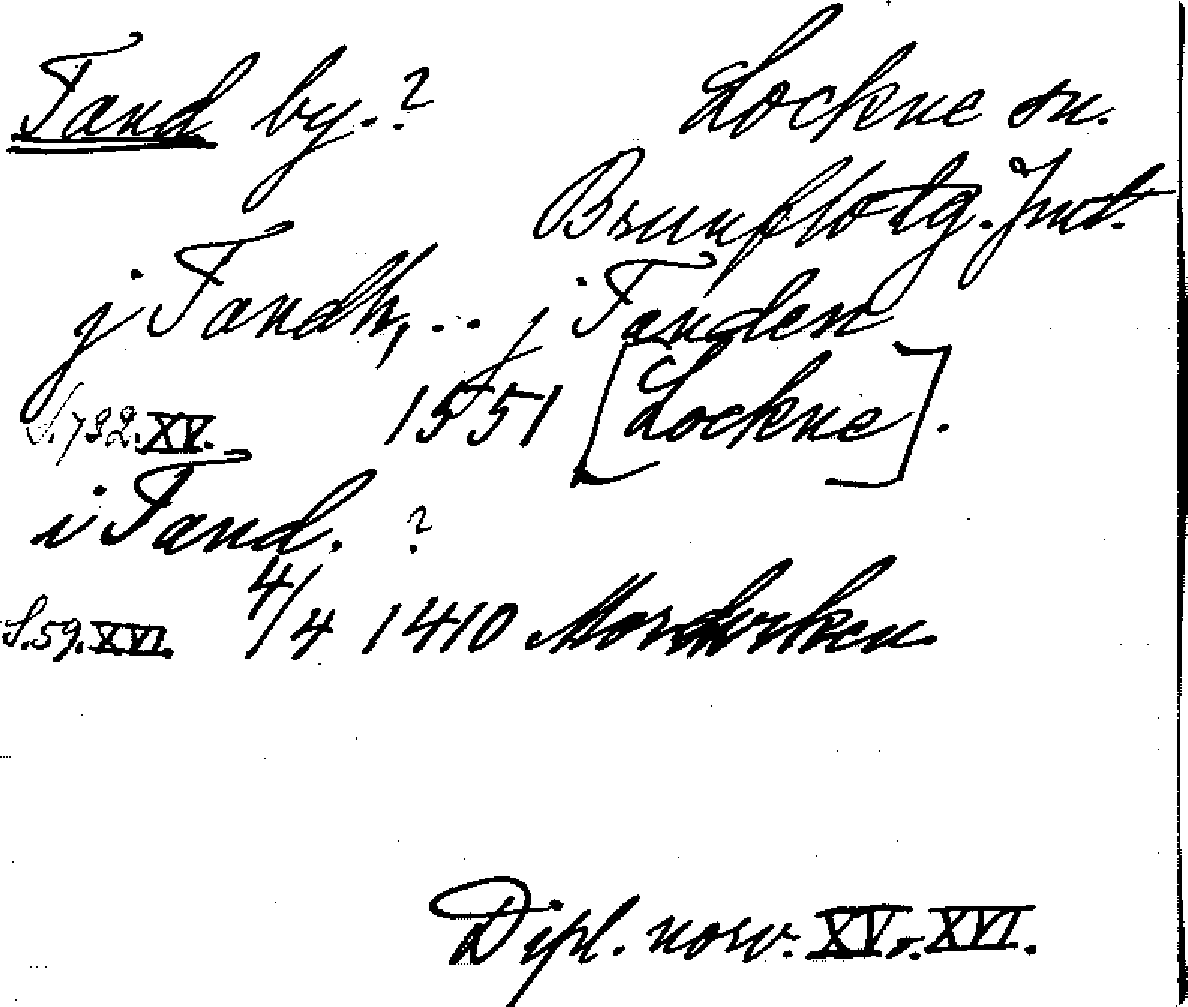 Tand by.? Lockne sn.
Brunflo tg. Jmt.
j Tandh, .. j Tanden
S.732.XV. 1551 [Lockne].
i Tand. ?
S.59.XVI. 4/4 1410
Dipl. norv. XV o. XVI.